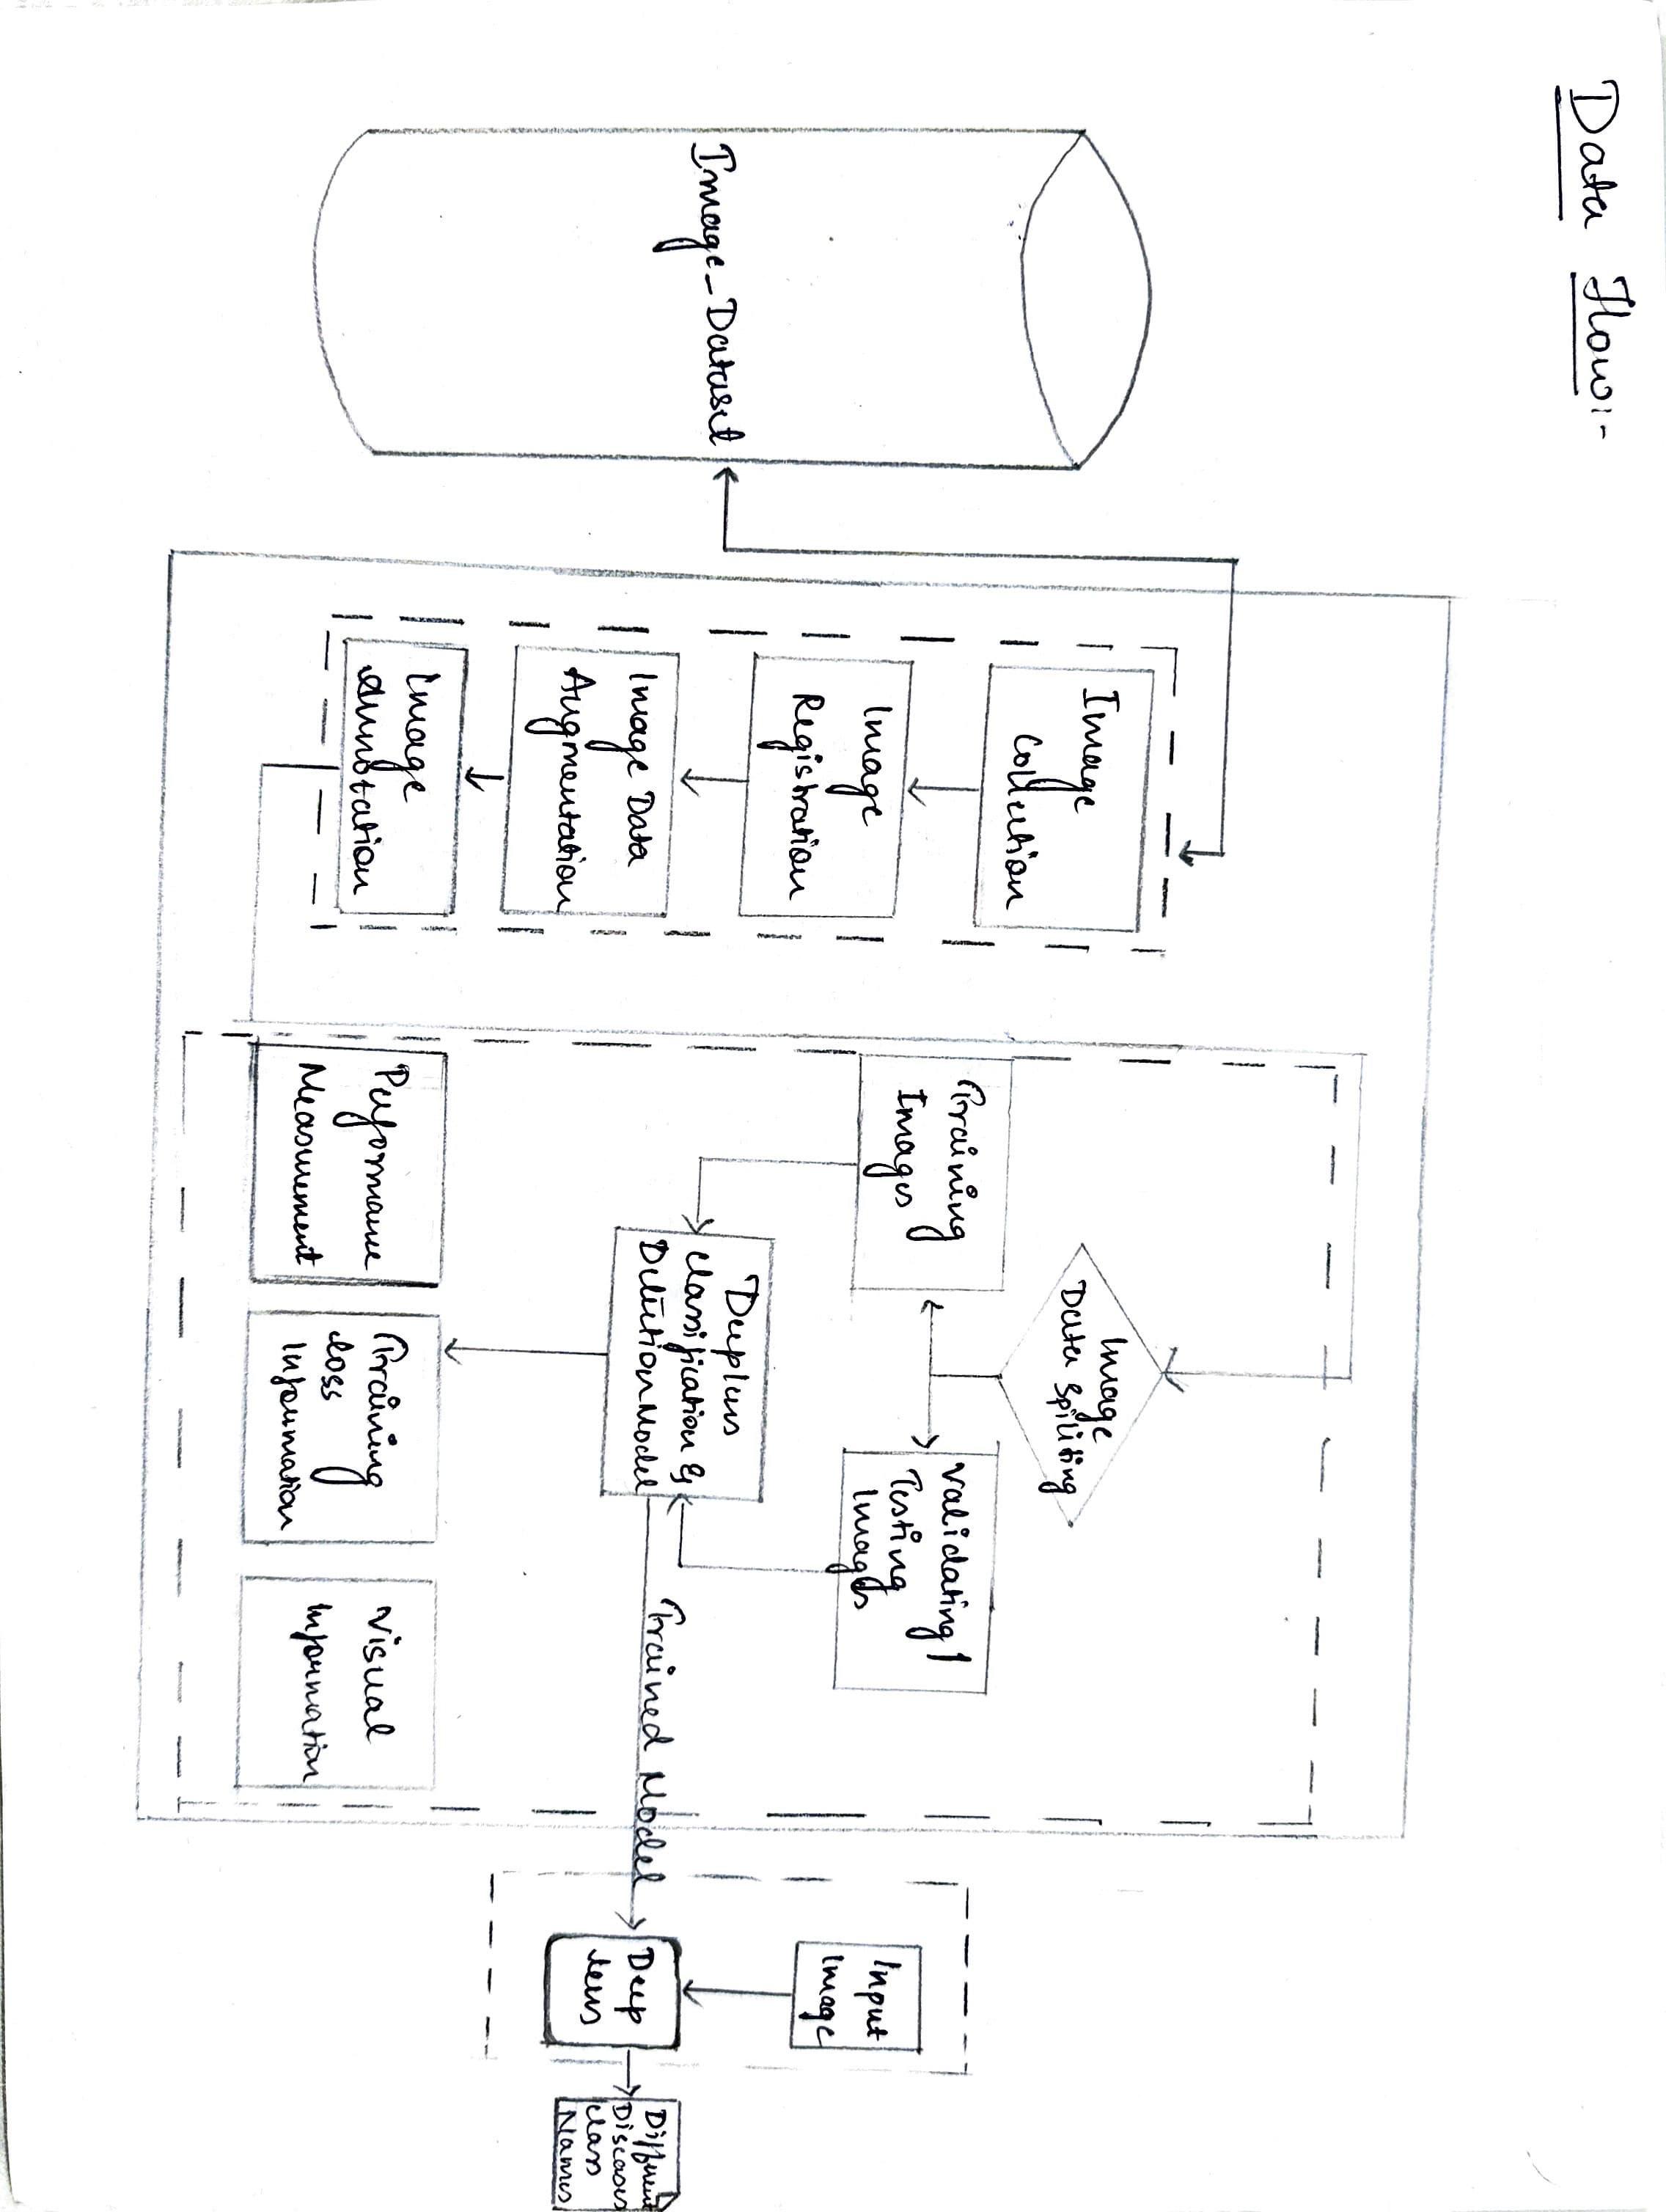 Data Flow:-
Image_Dataset
Image
Collection
Image
Registration
Image Data
Augmentation
Image
Annotation
Image
Data Spiliting
Training
Images
Validating /
Testing
Images
Deeplens
Classification &
Detection Model
Trained Model
Performance
Measurement
Training
loss
Information
Visual
Information
Input
Image
Deep
lens
Different
Diseases
class
Names